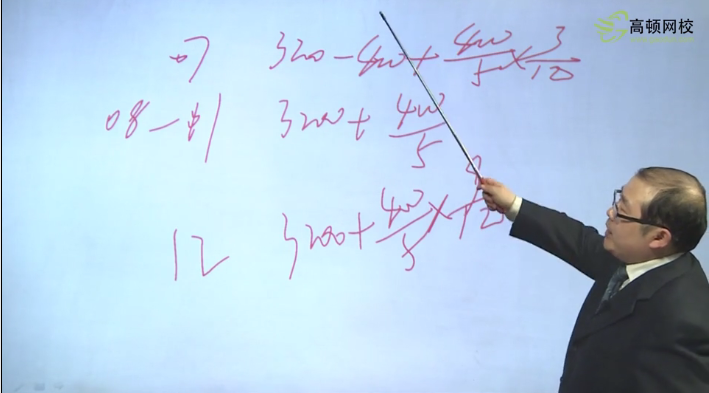 高顿网校
07 3200 - 400 + 400/5 × 3/10
08 - 11 3200 + 400/5
12 3200 + 400/5 ×